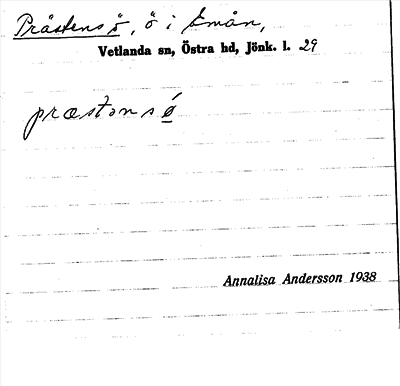 Prästens ö, ö i Emån,
Vetlanda sn, Östra hd, Jönk. l. 29
præstɘns ǿ
Annalisa Andersson 1938